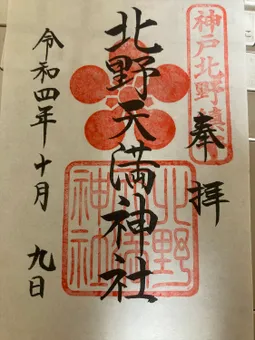 神戸北野鎮座
奉拝
北野天満神社
北野天満神社
令和四年十月九日